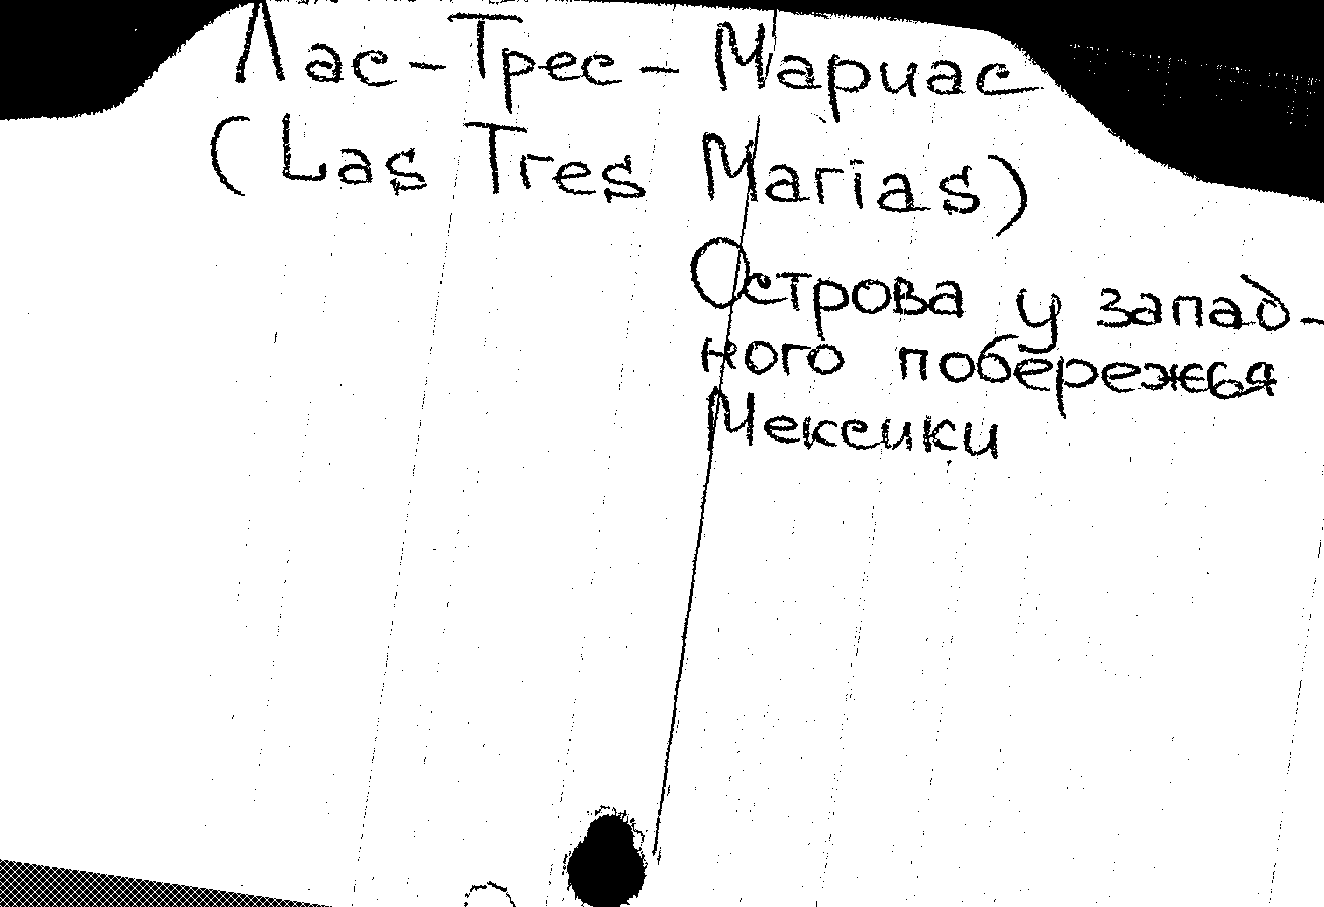 Лас-Трес-Мариас
(Las Tres Marias)
Острова у запад-
ного побережья
Мексики